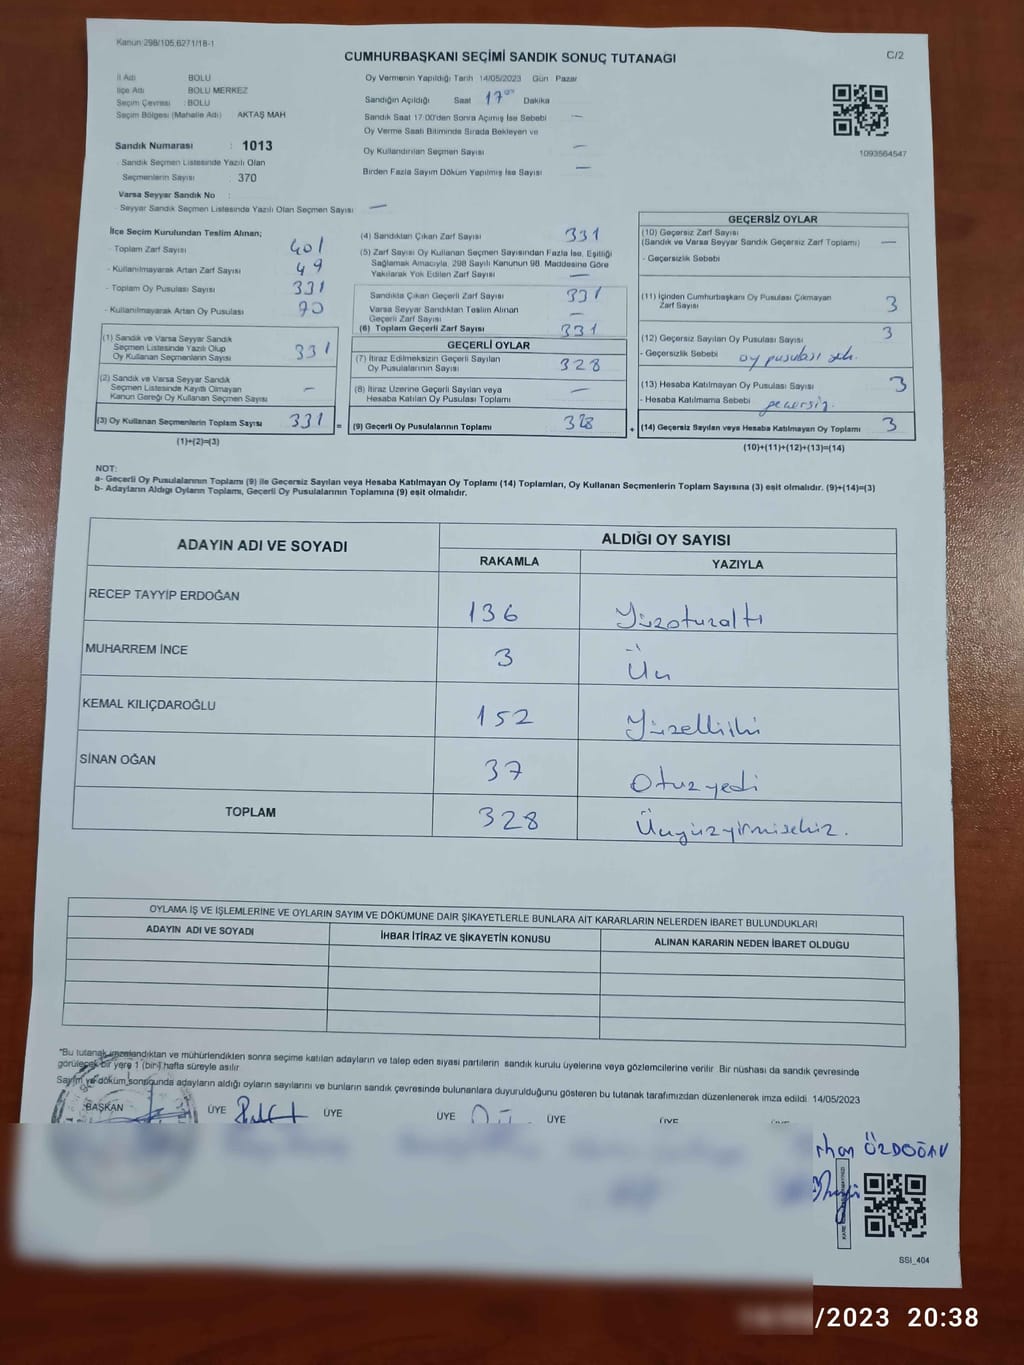 Kanun:298/105,6271/18-1
CUMHURBAŞKANI SEÇİMİ SANDIK SONUÇ TUTANAĞI
C/2
İl Adı BOLU
İlçe Adı BOLU MERKEZ
Seçim Çevresi : BOLU
Seçim Bölgesi (Mahalle Adı) AKTAŞ MAH
Sandık Numarası : 1013
Sandık Seçmen Listesinde Yazılı Olan
Seçmenlerin Sayısı : 370
Varsa Seyyar Sandık No :
- Seyyar Sandık Seçmen Listesinde Yazılı Olan Seçmen Sayısı —
Oy Vermenin Yapıldığı Tarih 14/05/2023 Gün Pazar
Sandığın Açıldığı Saat 17 Dakika
Sandık Saat 17:00'den Sonra Açılmış İse Sebebi —
Oy Verme Saati Bitiminde Sırada Bekleyen ve
Oy Kullandırılan Seçmen Sayısı —
Birden Fazla Sayım Döküm Yapılmış İse Sayısı —
1093564547
İlçe Seçim Kurulundan Teslim Alınan;
- Toplam Zarf Sayısı 401
- Kullanılmayarak Artan Zarf Sayısı 49
- Toplam Oy Pusulası Sayısı 331
- Kullanılmayarak Artan Oy Pusulası 70
(1) Sandık ve Varsa Seyyar Sandık
Seçmen Listesinde Yazılı Olup
Oy Kullanan Seçmenlerin Sayısı 331
(2) Sandık ve Varsa Seyyar Sandık
Seçmen Listesinde Kayıtlı Olmayan
Kanun Gereği Oy Kullanan Seçmen Sayısı —
(3) Oy Kullanan Seçmenlerin Toplam Sayısı 331 =
(1)+(2)=(3)
(4) Sandıktan Çıkan Zarf Sayısı 331
(5) Zarf Sayısı Oy Kullanan Seçmen Sayısından Fazla İse, Eşitliği
Sağlamak Amacıyla, 298 Sayılı Kanunun 98. Maddesine Göre
Yakılarak Yok Edilen Zarf Sayısı —
Sandıkta Çıkan Geçerli Zarf Sayısı 331
Varsa Seyyar Sandıktan Teslim Alınan
Geçerli Zarf Sayısı —
(6) Toplam Geçerli Zarf Sayısı 331
GEÇERLİ OYLAR
(7) İtiraz Edilmeksizin Geçerli Sayılan
Oy Pusulalarının Sayısı 328
(8) İtiraz Üzerine Geçerli Sayılan veya
Hesaba Katılan Oy Pusulası Toplamı —
(9) Geçerli Oy Pusulalarının Toplamı 328 +
GEÇERSİZ OYLAR
(10) Geçersiz Zarf Sayısı
(Sandık ve Varsa Seyyar Sandık Geçersiz Zarf Toplamı) —
- Geçersizlik Sebebi
(11) İçinden Cumhurbaşkanı Oy Pusulası Çıkmayan
Zarf Sayısı 3
(12) Geçersiz Sayılan Oy Pusulası Sayısı 3
- Geçersizlik Sebebi oy pusulası
(13) Hesaba Katılmayan Oy Pusulası Sayısı 3
- Hesaba Katılmama Sebebi geçersiz.
(14) Geçersiz Sayılan veya Hesaba Katılmayan Oy Toplamı 3
(10)+(11)+(12)+(13)=(14)
NOT:
a- Geçerli Oy Pusulalarının Toplamı (9) ile Geçersiz Sayılan veya Hesaba Katılmayan Oy Toplamı (14) Toplamları, Oy Kullanan Seçmenlerin Toplam Sayısına (3) eşit olmalıdır. (9)+(14)=(3)
b- Adayların Aldığı Oyların Toplamı, Geçerli Oy Pusulalarının Toplamına (9) eşit olmalıdır.
ADAYIN ADI VE SOYADI
ALDIĞI OY SAYISI
RAKAMLA YAZIYLA
RECEP TAYYİP ERDOĞAN 136 Yüzotuzaltı
MUHARREM İNCE 3 Üç
KEMAL KILIÇDAROĞLU 152 Yüzelliiki
SİNAN OĞAN 37 Otuzyedi
TOPLAM 328 Üçyüzyirmisekiz.
OYLAMA İŞ VE İŞLEMLERİNE VE OYLARIN SAYIM VE DÖKÜMÜNE DAİR ŞİKAYETLERLE BUNLARA AİT KARARLARIN NELERDEN İBARET BULUNDUKLARI
ADAYIN ADI VE SOYADI İHBAR İTİRAZ VE ŞİKAYETİN KONUSU ALINAN KARARIN NEDEN İBARET OLDUĞU
*Bu tutanak imzalandıktan ve mühürlendikten sonra seçime katılan adayların ve talep eden siyasi partilerin sandık kurulu üyelerine veya gözlemcilerine verilir. Bir nüshası da sandık çevresinde
görülecek bir yere 1 (bir) hafta süreyle asılır
Sayım ve döküm sonunda adayların aldığı oyların sayılarını ve bunların sandık çevresinde bulunanlara duyurulduğunu gösteren bu tutanak tarafımızdan düzenlenerek imza edildi. 14/05/2023
BAŞKAN ÜYE ÜYE ÜYE ÜYE ÜYE
ÖZDOĞAN
SSI_404
/2023 20:38